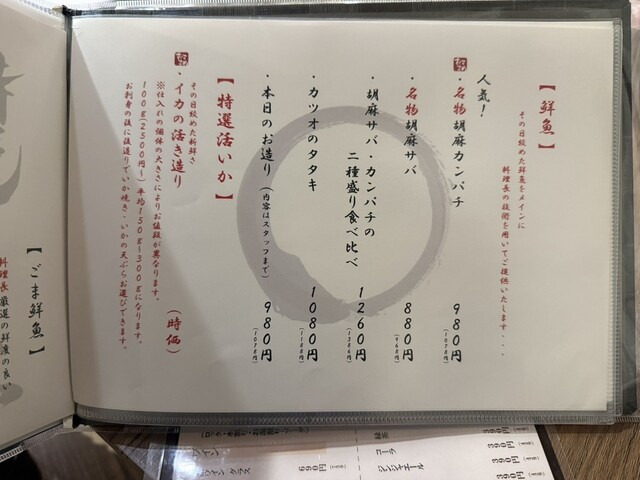 【鮮魚】
その日絞めた鮮魚をメインに
料理長の技術を用いてご提供いたします・・・
人気！
・名物胡麻カンパチ 980円
(1078円)
・名物胡麻サバ 880円
(968円)
・胡麻サバ・カンパチの
二種盛り食べ比べ 1260円
(1386円)
・カツオのタタキ 1080円
(1188円)
・本日のお造り (内容はスタッフまで) 980円
(1078円)
【特選活いか】
その日絞めた新鮮さ
・イカの活き造り (時価)
※仕入れの個体の大きさによりお値段が異なります。
100g(2500円〜) 平均150g〜300gになります。
お刺身の後に後造りでいか焼き・いかの天ぷらお選びできます。
【ごま鮮魚】
料理長厳選の鮮度の良い
390円
コーラ
390円
ジンジャエール
390円
グラス
690円